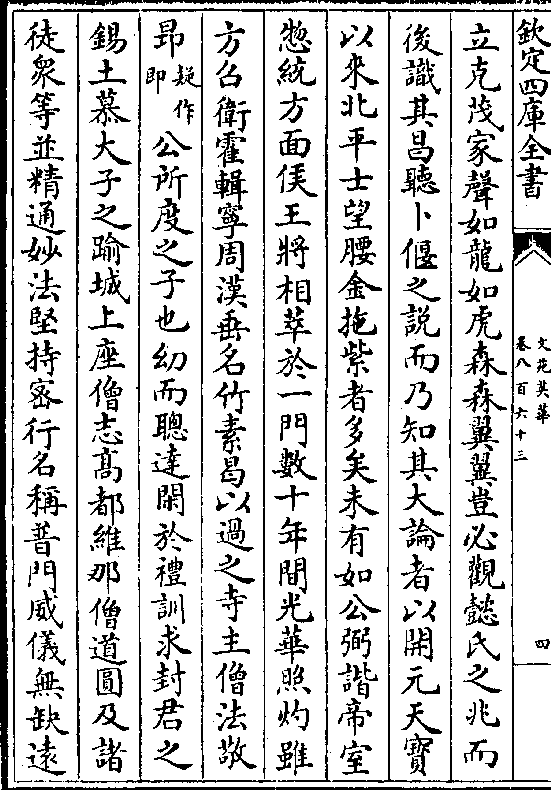 欽定四庫全書
文苑英華
卷八百六十三
四
立克茂家聲如龍如虎森森翼翼豈必觀懿氏之兆而
後識其昌聽卜偃之説而乃知其大論者以開元天寶
以來北平士望腰金拖紫者多矣未有如公弼諧帝室
惣統方面侯王將相萃於一門數十年間光華照灼雖
方召衛霍輯寧周漢垂名竹素曷以過之寺主僧法敬
昻疑作即公所度之子也幼而聰達閑於禮訓求封君之
錫土慕大子之踰城上座僧志髙都維那僧道圓及諸
徒衆等並精通妙法堅持宻行名稱普門威儀無缺逺